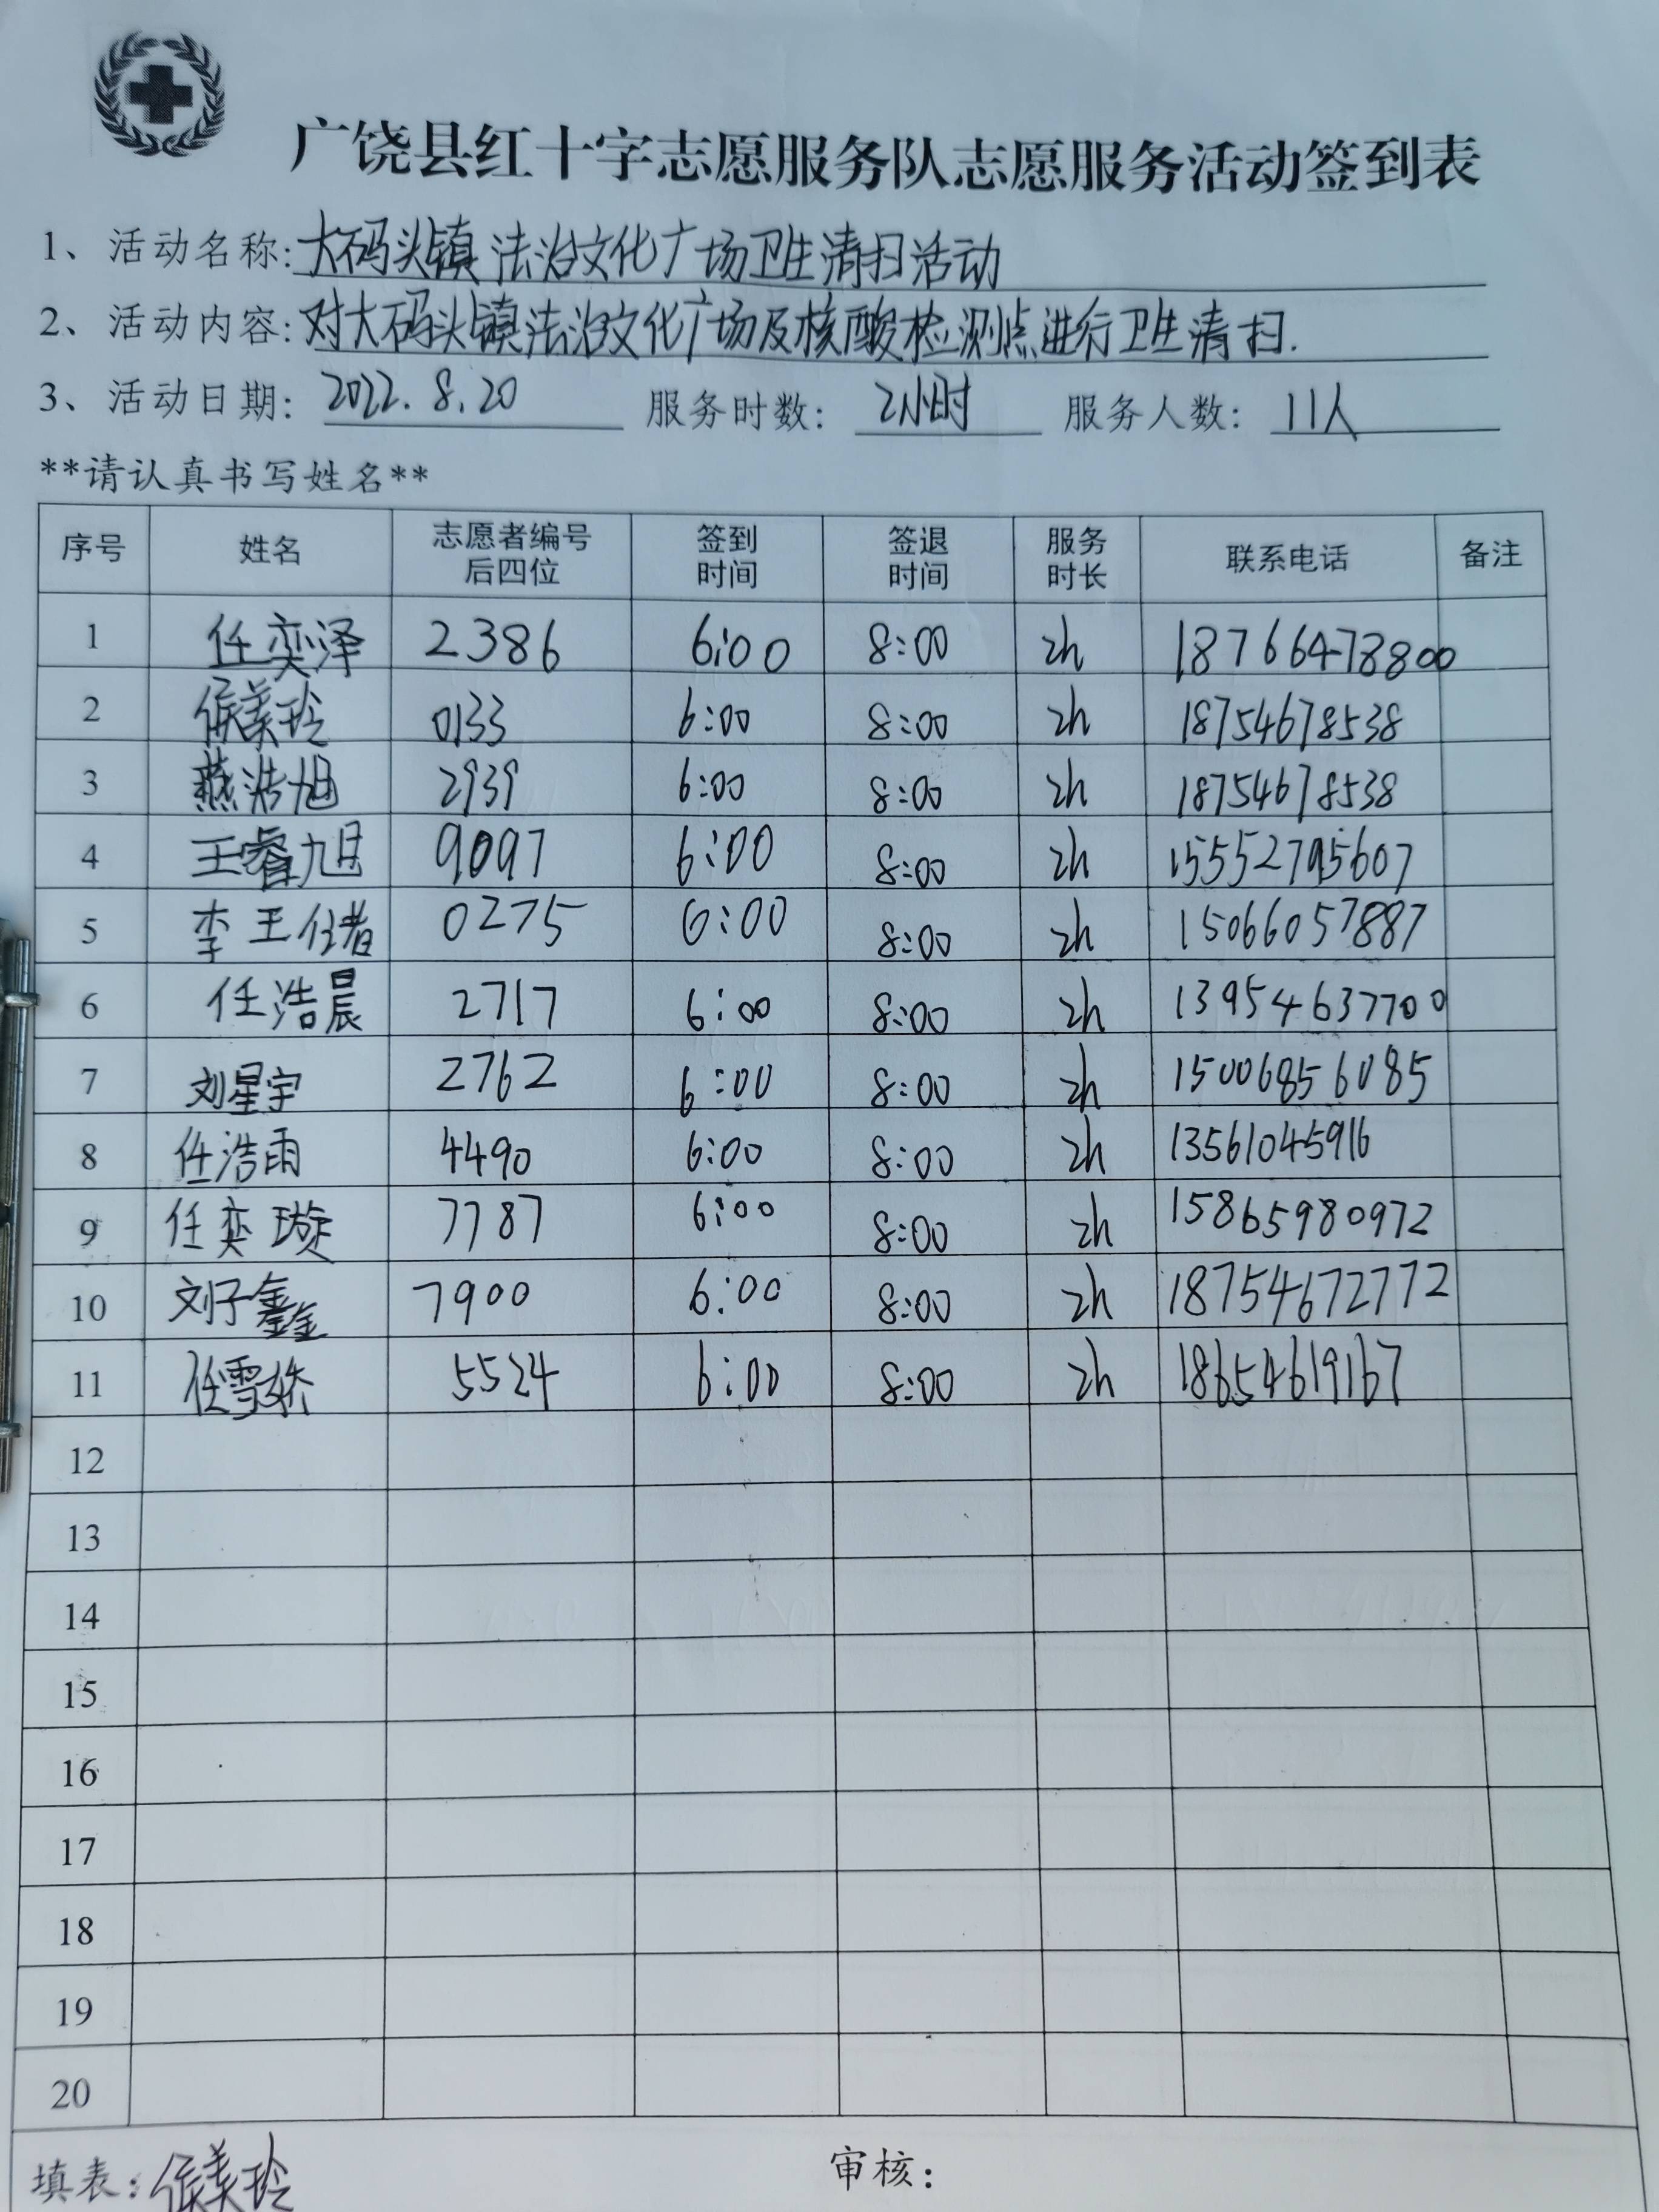 广饶县红十字志愿服务队志愿服务活动签到表
1、活动名称:大码头镇法治文化广场卫生清扫活动
2、活动内容:对大码头镇法治文化广场及核酸检测点进行卫生清扫.
3、活动日期: 2022.8.20 服务时数: 2小时 服务人数: 11人
**请认真书写姓名**
序号 姓名 志愿者编号后四位 签到时间 签退时间 服务时长 联系电话 备注
1 任奕泽 2386 6:00 8:00 2h 18766478800
2 侯美玲 0133 6:00 8:00 2h 18754678538
3 燕浩旭 2939 6:00 8:00 2h 18754678538
4 王睿旭 9097 6:00 8:00 2h 15552795607
5 李王 0275 6:00 8:00 2h 15066057887
6 任浩晨 2717 6:00 8:00 2h 13954637700
7 刘星宇 2762 6:00 8:00 2h 15006856085
8 任浩雨 4490 6:00 8:00 2h 13561045916
9 任奕璇 7787 6:00 8:00 2h 15865980972
10 刘子鑫 7900 6:00 8:00 2h 18754672772
11 任雪娇 5524 6:00 8:00 2h 18654619167
12
13
14
15
16
17
18
19
20
填表:侯美玲 审核: